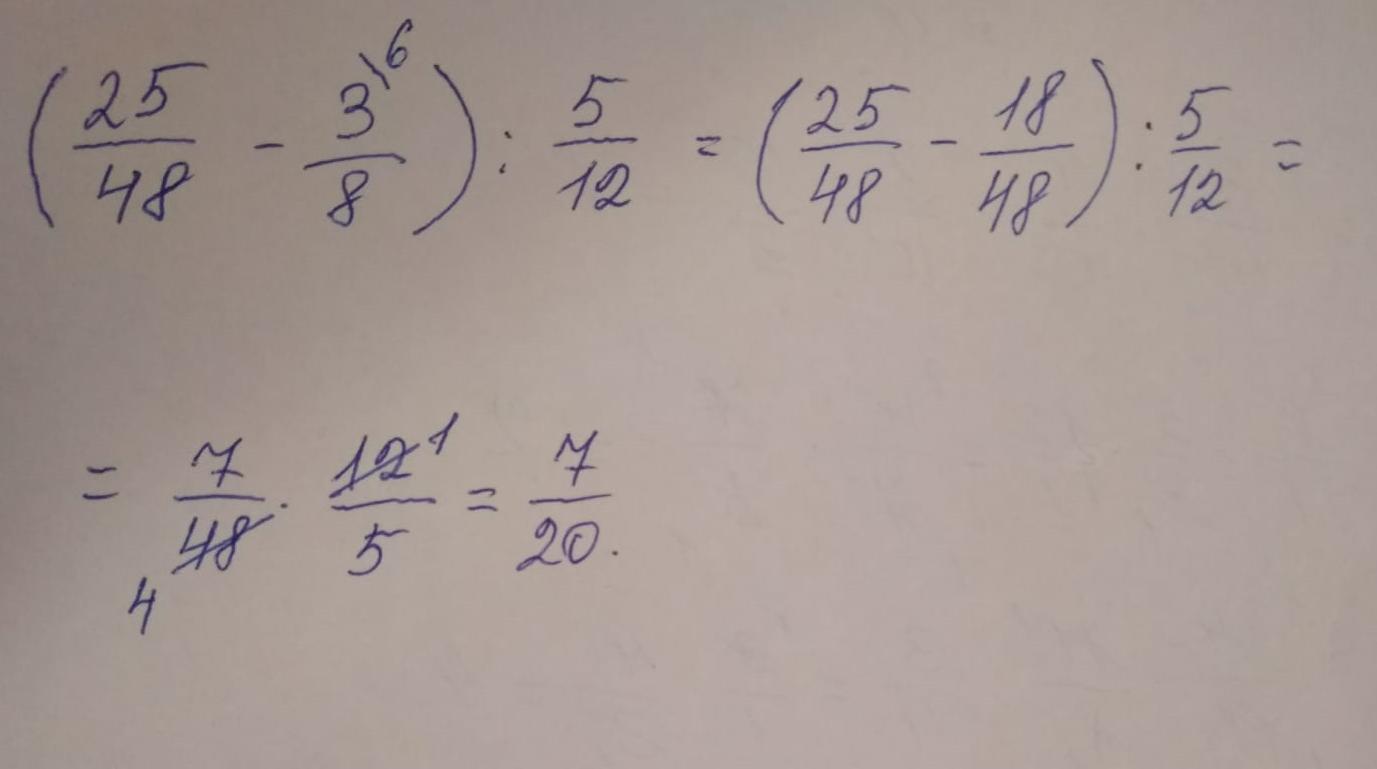 (25/48 - 3\6/8) : 5/12 = (25/48 - 18/48) : 5/12 =
= 7/48 4 · 12 1/5 = 7/20.